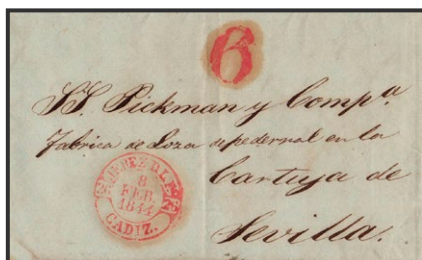 6
SS. Pickman y Compª.
Fabrica de Loza de pedernal en la
Cartuja de
Sevilla.
JEREZ DE LA F.
8
FEB.
1844
CADIZ.